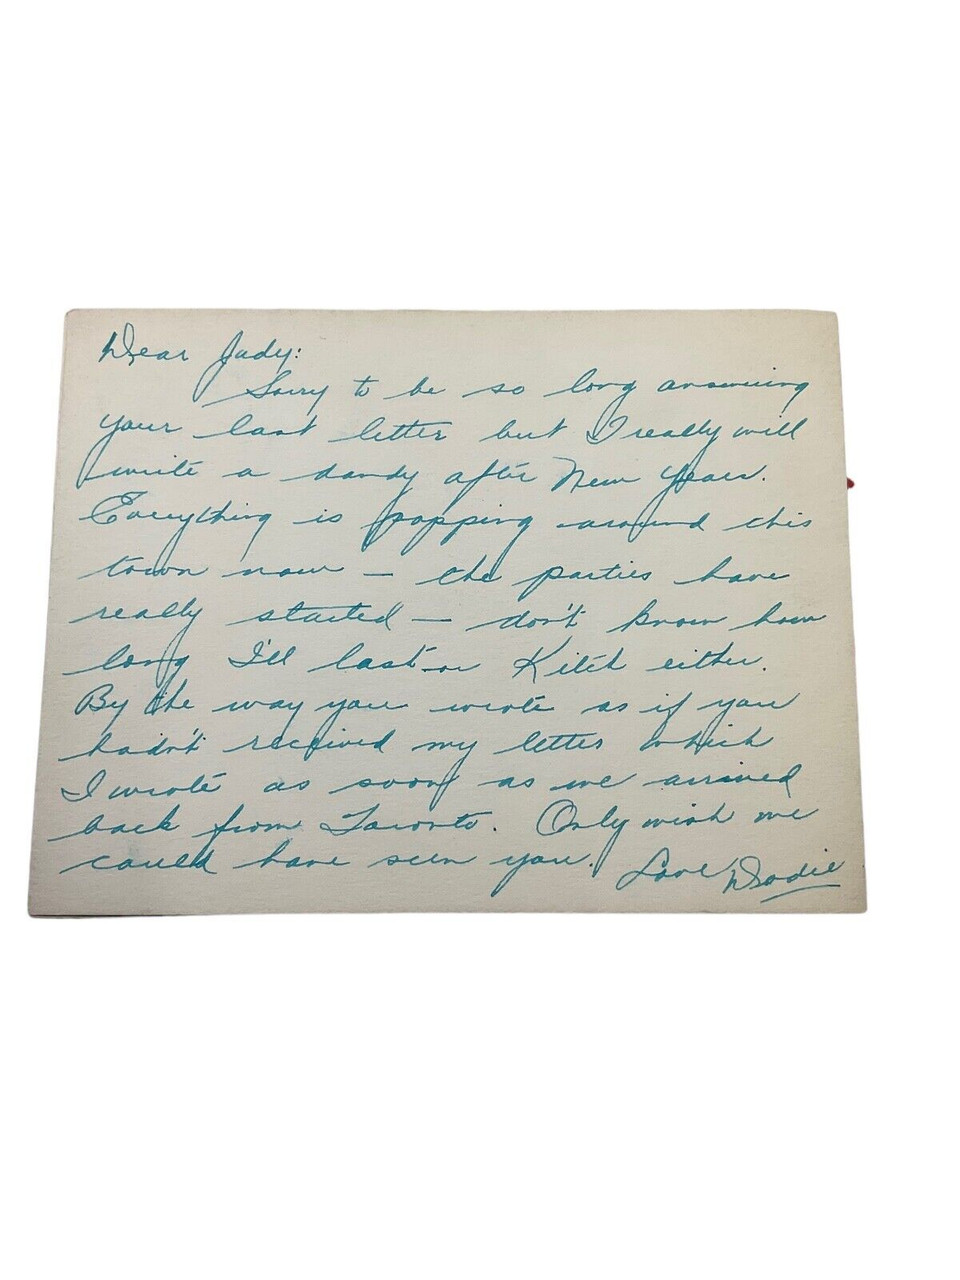 Dear Judy:
Sorry to be so long answering
your last letter but I really will
write a dandy after New Years.
Everything is popping around this
town now — the parties have
really started — don't know how
long I'll last or Kitch either.
By the way you wrote as if you
hadn't received my letter which
I wrote as soon as we arrived
back from Toronto. Only wish we
could have seen you. Love Dodie